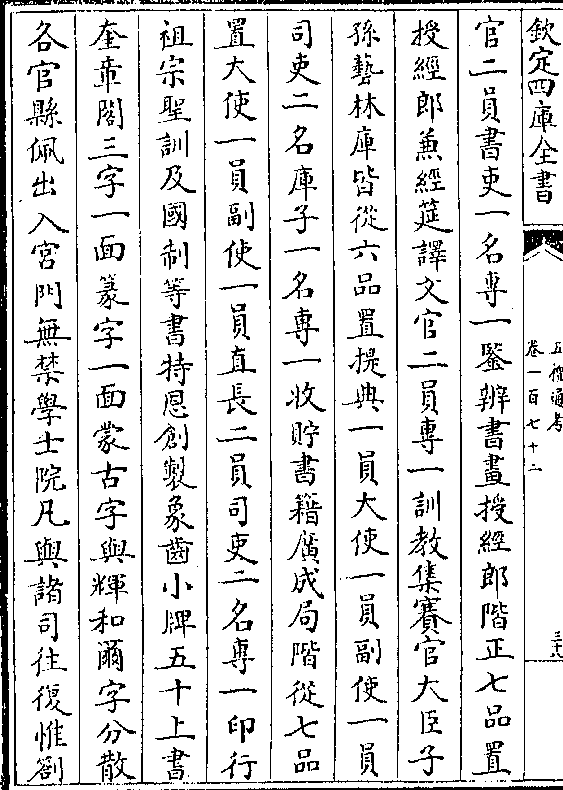 欽定四庫全書
五禮通考
卷一百七十二
三十八
官二員書吏一名專一鑒辨書畫授經郎階正七品置
授經郎兼經筵譯文官二員專一訓教集賽官大臣子
孫藝林庫皆從六品置提典一員大使一員副使一員
司吏二名庫子一名專一收貯書籍廣成局階從七品
置大使一員副使一員直長二員司吏二名專一印行
祖宗聖訓及國制等書特恩創製象齒小牌五十上書
奎章閣三字一面篆字一面蒙古字與輝和爾字分散
各官縣佩出入宮門無禁學士院凡與諸司往復惟劄